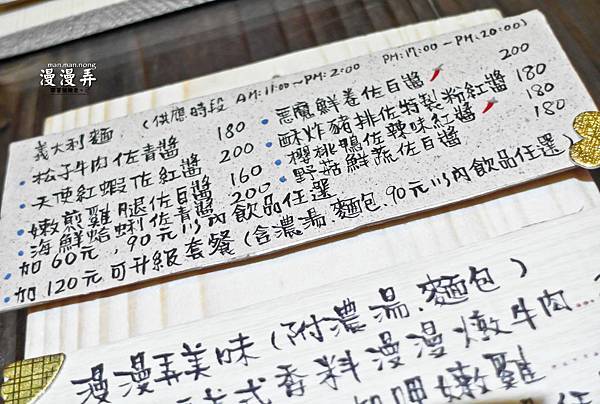 man.man.nong
漫漫弄
義大利麵 (供應時段 AM:11:00~PM:2:00 PM:17:00~PM:20:00)
・松子牛肉佐青醬 180
・天使紅蝦佐紅醬 200
・嫩煎雞腿佐白醬 160
・海鮮蛤蜊佐青醬 200
・惡魔鮮卷佐白醬 200
・酥炸豬排佐特製粉紅醬 180
・櫻桃鴨佐辣味紅醬 180
・野菇鮮蔬佐白醬 180
・加60元,90元以內飲品任選
・加120元可升級套餐(含濃湯.麵包.90元以內飲品任選)
漫漫弄美味(附濃湯.麵包)
式香料漫漫燉牛肉...
嫩雞......